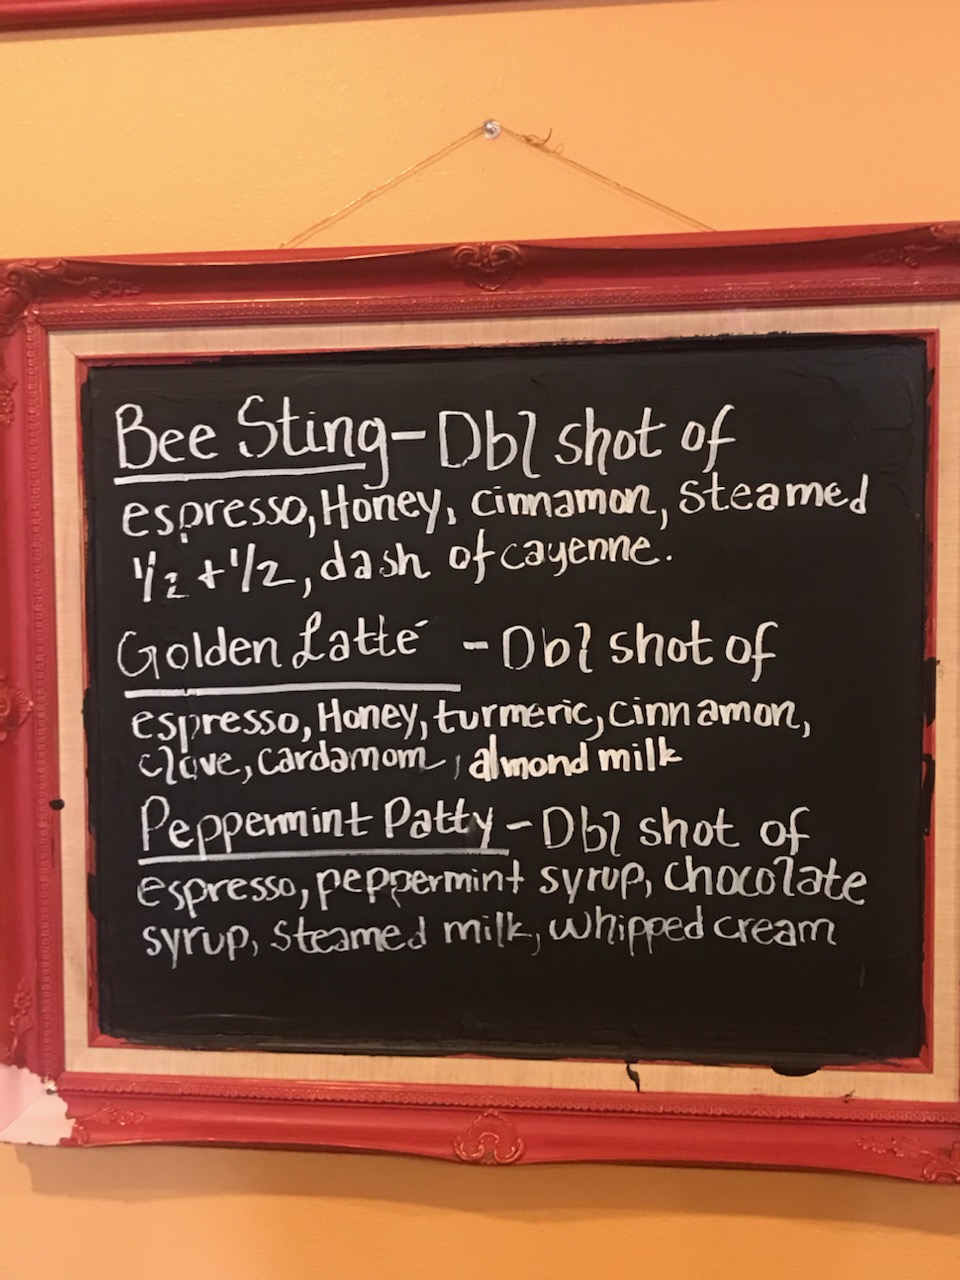 Bee Sting - Dbl shot of
espresso, Honey, cinnamon, Steamed
1/2 + 1/2, dash of cayenne.
Golden Latté - Dbl shot of
espresso, Honey, turmeric, cinnamon,
clove, cardamom, almond milk
Peppermint Patty - Dbl shot of
espresso, peppermint syrup, chocolate
syrup, steamed milk, whipped cream